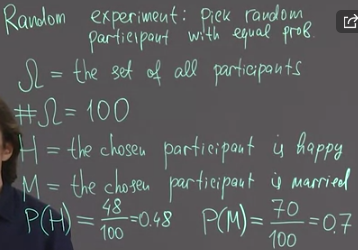 Random experiment: Pick random
participant with equal prob.
Ω = the set of all participants
#Ω = 100
H = the chosen participant is happy
M = the chosen participant is married
P(H) = 48/100 = 0.48 P(M) = 70/100 = 0.7